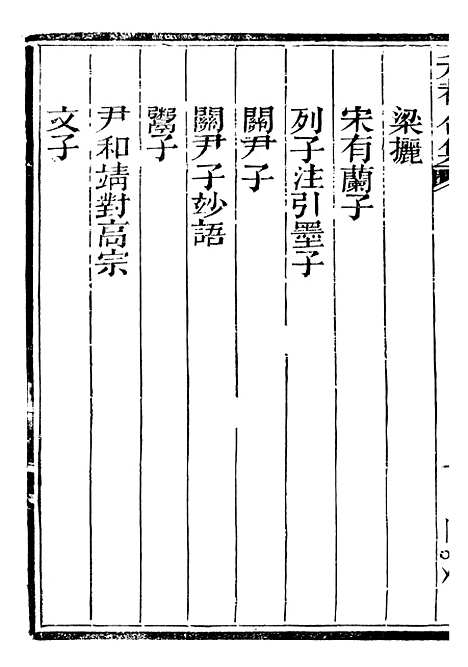 梁欐
宋有蘭子
列子注引墨子
關尹子
關尹子妙語
鬻子
尹和靖對高宗
文子